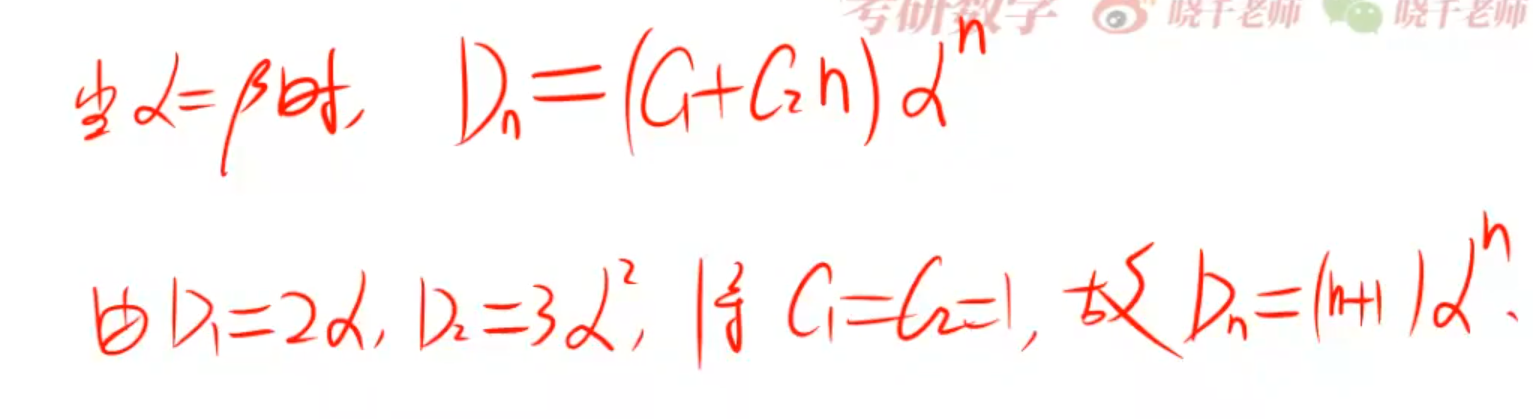 考研数学 晓千老师 晓千老师
当α=β时, Dₙ=(C₁+C₂n)αⁿ
由D₁=2α, D₂=3α², 得 C₁=C₂=1, 故 Dₙ=(n+1)αⁿ.